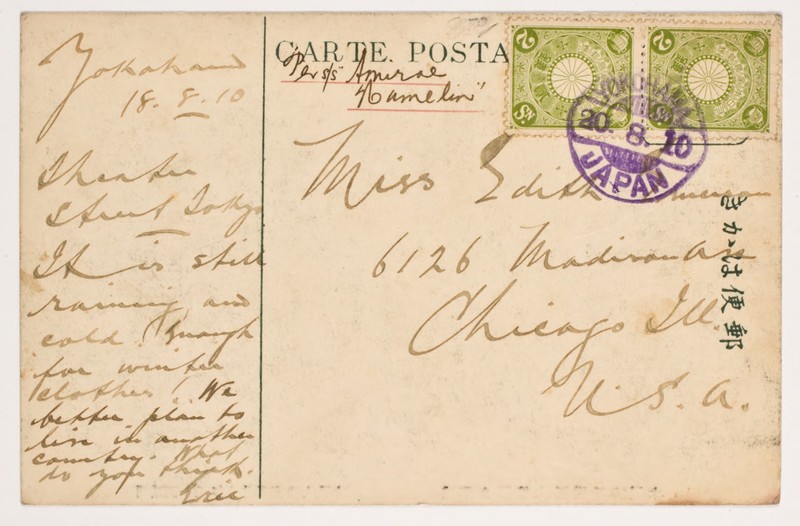 Yokohama
18.8.10
Theater
Street Tokyo
It is still
raining and
cold. Enough
for winter
clothes! We
better plan to
live in another
country. What
do you think.
Eric
CARTE POSTA
"Per s/s Amiral
Hamelin"
2 2
YOKOHAMA
20. 8. 10
JAPAN
Miss Edith
6126 Madison Ave
Chicago Ill.
U.S.A.
郵便はかき